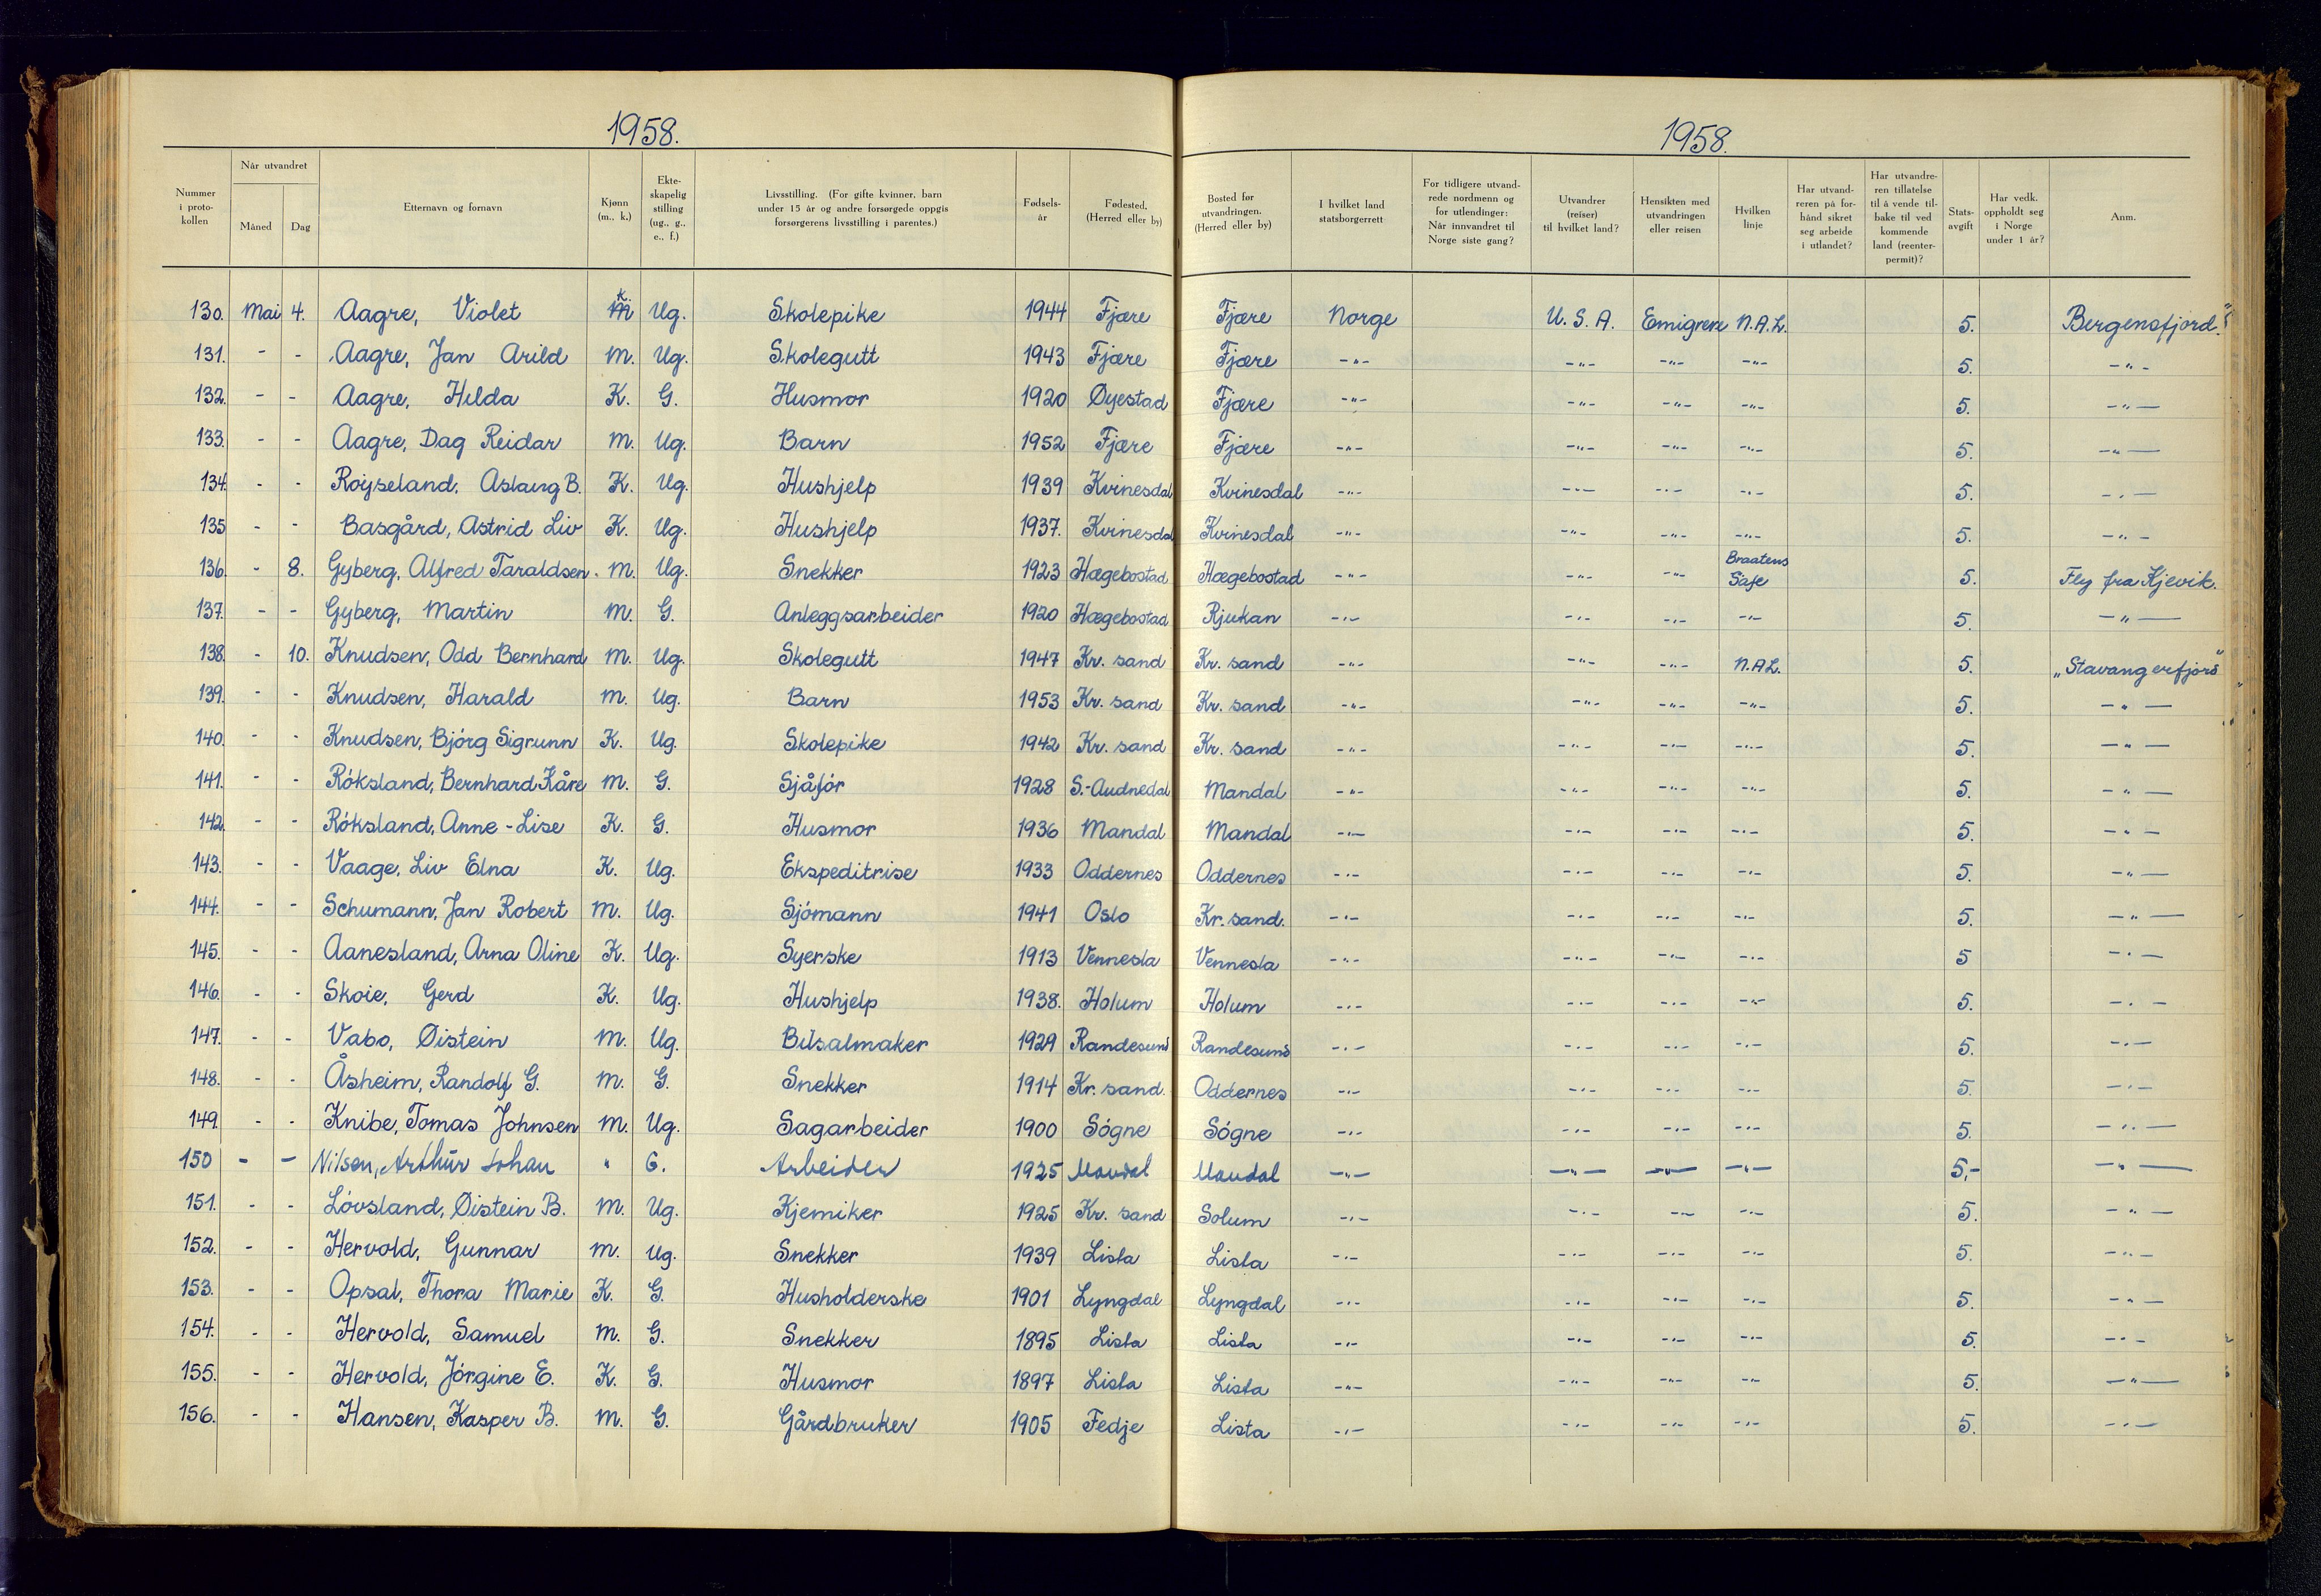 1958.
1958.
Nummer i proto- kollen | Når utvandret | Måned | Dag | Etternavn og fornavn | Kjønn (m., k.) | Ekte- skapelig stilling (ug., g., e., f.) | Livsstilling. (For gifte kvinner, barn under 15 år og andre forsørgede oppgis forsørgerens livsstilling i parentes.) | Fødsels- år | Fødested. (Herred eller by) | Bosted før utvandringen. (Herred eller by) | I hvilket land statsborgerrett | For tidligere utvand- rede nordmenn og for utlendinger: Når innvandret til Norge siste gang? | Utvandrer (reiser) til hvilket land? | Hensikten med utvandringen eller reisen | Hvilken linje | Har utvand- reren på for- hånd sikret seg arbeide i utlandet? | Har utvandre- ren tillatelse til å vende til- bake til ved kommende land (reenter- permit)? | Stats- avgift | Har vedk. oppholdt seg i Norge under 1 år? | Anm.
130. Mai 4. Aagre, Violet k Ug. Skolepike 1944 Fjære Fjære Norge U.S.A. Emigrere N.A.L. 5. Bergensfjord."
131. - - Aagre, Jan Arild M. Ug. Skolegutt 1943 Fjære Fjære -"- -"- -"- -"- 5. -"-
132. - - Aagre, Hilda K. G. Husmor 1920 Øyestad Fjære -"- -"- -"- -"- 5. -"-
133. - - Aagre, Dag Reidar M. Ug. Barn 1952 Fjære Fjære -"- -"- -"- -"- 5. -"-
134. - - Røyseland, Aslaug B. K. Ug. Hushjelp 1939 Kvinesdal Kvinesdal -"- -"- -"- -"- 5. -"-
135 - - Basgård, Astrid Liv K. Ug. Hushjelp 1937. Kvinesdal Kvinesdal -"- -"- -"- -"- 5. -"-
136. - 8. Gyberg, Alfred Taraldsen. M. Ug. Snekker 1923 Hægebostad Hægebostad -"- -"- -"- Braatens Safe 5. Fly fra Kjevik.
137. - - Gyberg, Martin M. G. Anleggsarbeider 1920 Hægebostad Rjukan -"- -"- -"- -"- 5. -"-
138. - 10. Knudsen, Odd Bernhard M. Ug. Skolegutt 1947 Kr. sand Kr. sand -"- -"- -"- N.A.L. 5. "Stavangerfjord"
139. - - Knudsen, Harald M. Ug. Barn 1953 Kr. sand Kr. sand -"- -"- -"- -"- 5. -"-
140. - - Knudsen, Bjørg Sigrunn K. Ug. Skolepike 1942 Kr. sand Kr. sand -"- -"- -"- -"- 5. -"-
141. - - Røksland, Bernhard Kåre M. G. Sjåfør 1928 S.-Audnedal Mandal -"- -"- -"- -"- 5. -"-
142. - - Røksland, Anne-Lise K. G. Husmor 1936 Mandal Mandal -"- -"- -"- -"- 5. -"-
143. - - Vaage, Liv Elna K. Ug. Ekspeditrise 1933 Oddernes Oddernes -"- -"- -"- -"- 5. -"-
144. - - Schumann, Jan Robert M. Ug. Sjømann 1941 Oslo Kr. sand. -"- -"- -"- -"- 5. -"-
145. - - Aanesland, Arna Oline K. Ug. Syerske 1913 Vennesla Vennesla -"- -"- -"- -"- 5 -"-
146. - - Skoie, Gerd K. Ug. Hushjelp 1938. Holum Holum -"- -"- -"- -"- 5. -"-
147. - - Vabo, Øistein M. Ug. Bilsalmaker 1929 Randesund Randesund -"- -"- -"- -"- 5. -"-
148. - - Åsheim, Randolf G. M. G. Snekker 1914 Kr. sand. Oddernes -"- -"- -"- -"- 5. -"-
149. - - Knibe, Tomas Johnsen M. Ug. Sagarbeider 1900 Søgne Søgne -"- -"- -"- -"- 5. -"-
150 - - Nilsen, Arthur Johan " G. Arbeider 1925 Mandal Mandal -"- -"- -"- -"- 5,- -"-
151. - - Løvsland, Øistein B. M. Ug. Kjemiker 1925 Kr. sand Solum -"- -"- -"- -"- 5. -"-
152. - - Hervold, Gunnar M. Ug. Snekker 1939 Lista Lista -"- -"- -"- -"- 5. -"-
153. - - Opsal, Thora Marie K. G. Husholderske 1901 Lyngdal Lyngdal -"- -"- -"- -"- 5. -"-
154. - - Hervold, Samuel M. G. Snekker 1895 Lista Lista -"- -"- -"- -"- 5. -"-
155. - - Hervold, Jørgine E. K. G. Husmor 1897 Lista Lista -"- -"- -"- -"- 5. -"-
156. - - Hansen, Kasper B. M. G. Gårdbruker 1905 Fedje Lista -"- -"- -"- -"- 5. -"-